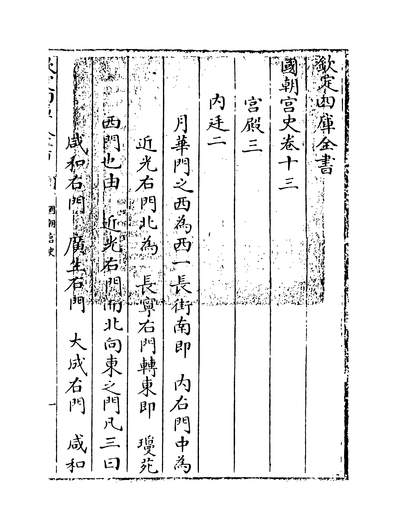 欽定四庫全書
國朝宮史卷十三
宮殿三
內廷二
月華門之西為西一長街南即 內右門中為
近光右門北為 長寧右門轉東即 瓊苑
西門也由 近光右門而北向東之門凡三曰
咸和右門 廣生右門 大成右門 咸和
國朝宮史
一